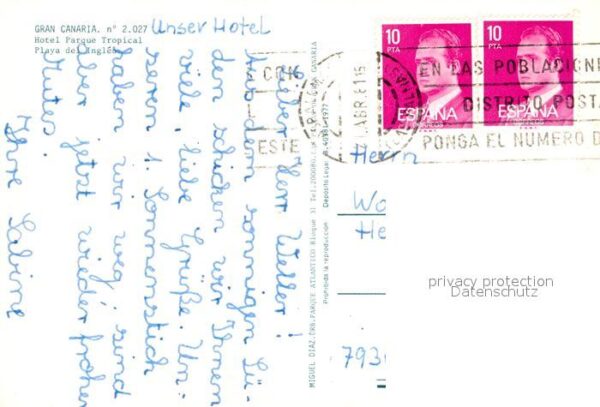 GRAN CANARIA. nº 2.027
Hotel Parque Tropical
Playa del Inglés
Unser Hotel
Lieber Herr Weller!
Aus dem sonnigen Sü-
den schicken wir Ihnen
viele, liebe Grüße. Un-
seren 1. Sonnenstich
haben wir weg, sind
aber jetzt wieder frohen
Mutes.
Ihre Sabine
MIGUEL DIAZ.ORB.PARQUE ATLANTICO Bloque
GRAN CANARIA
Prohibida la reproducción
Depósito Legal
1977
10
PTA
ESPAÑA
10
PTA
ESPAÑA
ABR. 81
EN LAS POBLACIONE
DISTRITO POSTA
PONGA EL NUMERO D
ESTE
Herrn
Wo
He
793
privacy protection
Datenschutz